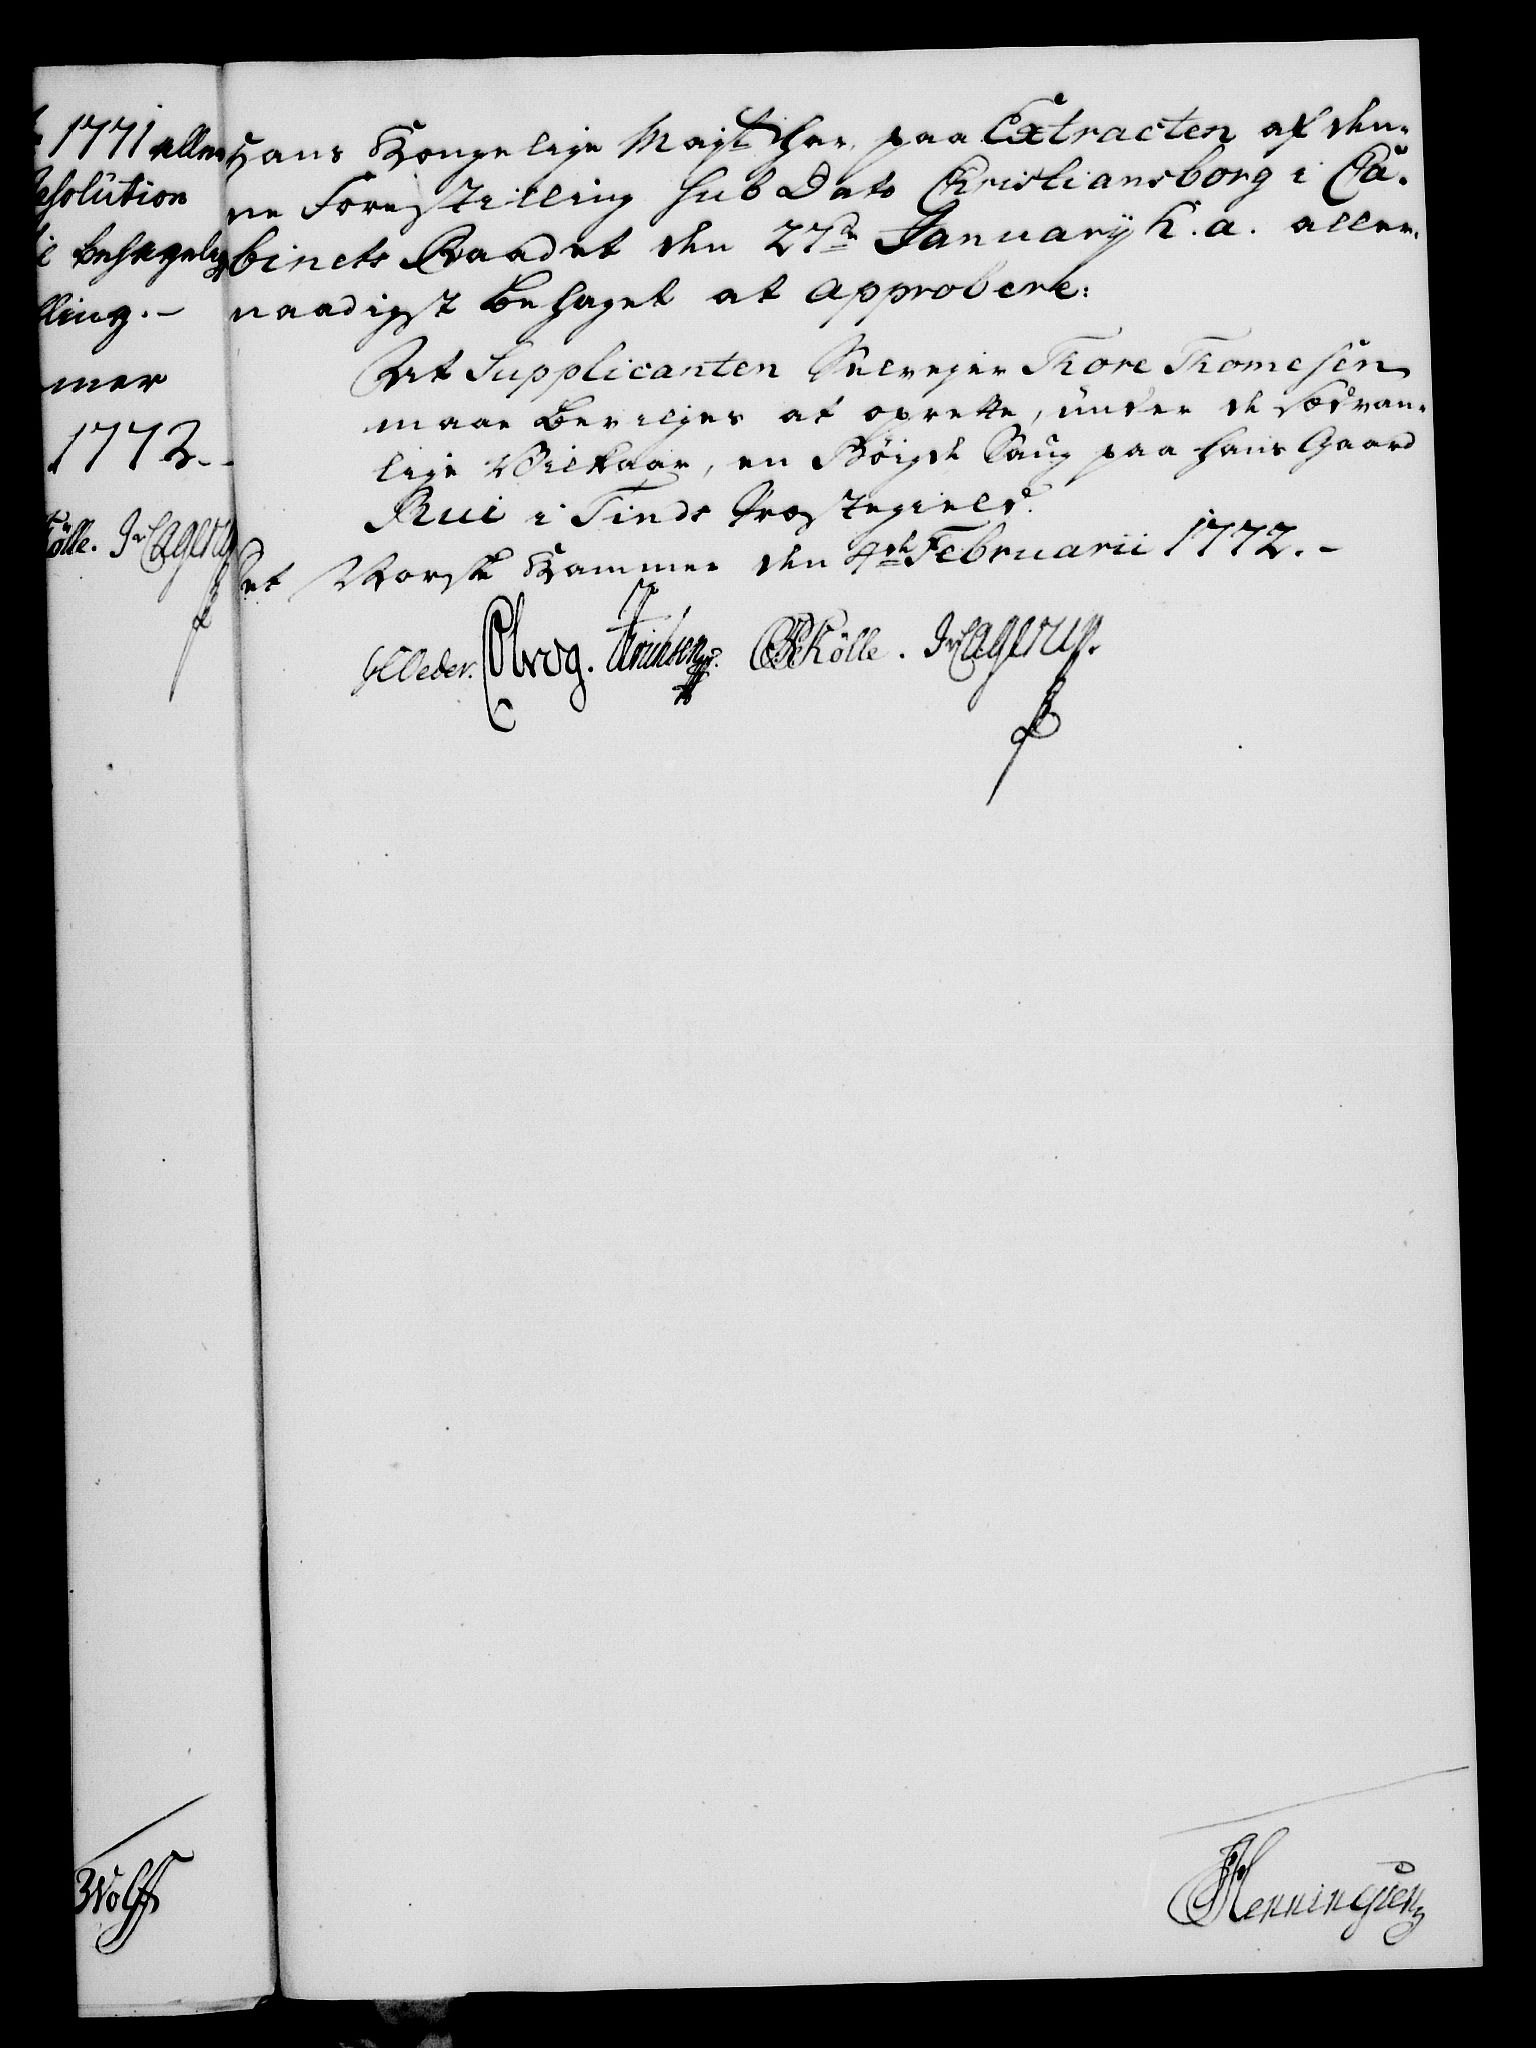 1771 aller
esolution
behagelig
lling.-
mer
1772.-
ölle. Lagerup
Wolff
Hans Kongelige Mayt har paa Extracten af den-
ne Forestilling sub Dato Christiansborg i Ca-
binets Raadet den 27de January h. a. aller-
naadigst behaget at approbere:
At Supplicanten Selveyer Tore Tomesen
maae bevilges at oprette, under de sædvan-
lige Vilkaar, en Bøigde Saug paa hans Gaard
Rui i Tinds Præstegield.
Det Norske Kammer den 4de Februarii 1772.-
Olrog. Kölle. Lagerup.
Henningsen